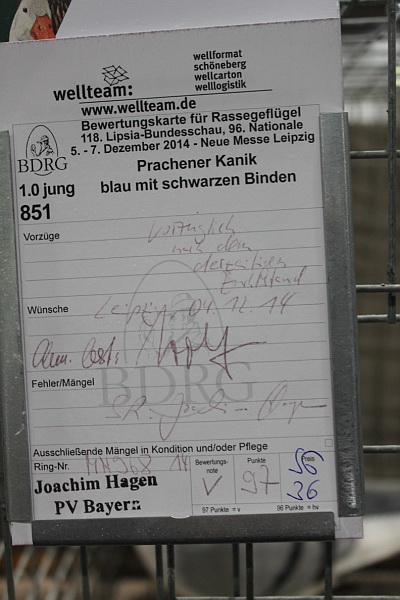 wellteam:
wellformat
schöneberg
wellcarton
welllogistik
www.wellteam.de
Bewertungskarte für Rassegeflügel
118. Lipsia-Bundesschau, 96. Nationale
5. - 7. Dezember 2014 - Neue Messe Leipzig
BDRG
Prachener Kanik
1.0 jung
blau mit schwarzen Binden
851
Vorzüge
Vorzüglich
nach dem
derzeitigen
Zuchtstand
Wünsche
Leipzig, 04.12.14
BDRG
Fehler/Mängel
Ausschließende Mängel in Kondition und/oder Pflege
Ring-Nr.
Joachim Hagen
PV Bayern
Bewertungs-
note
V
Punkte
97
Preis
36
97 Punkte = v
96 Punkte = hv